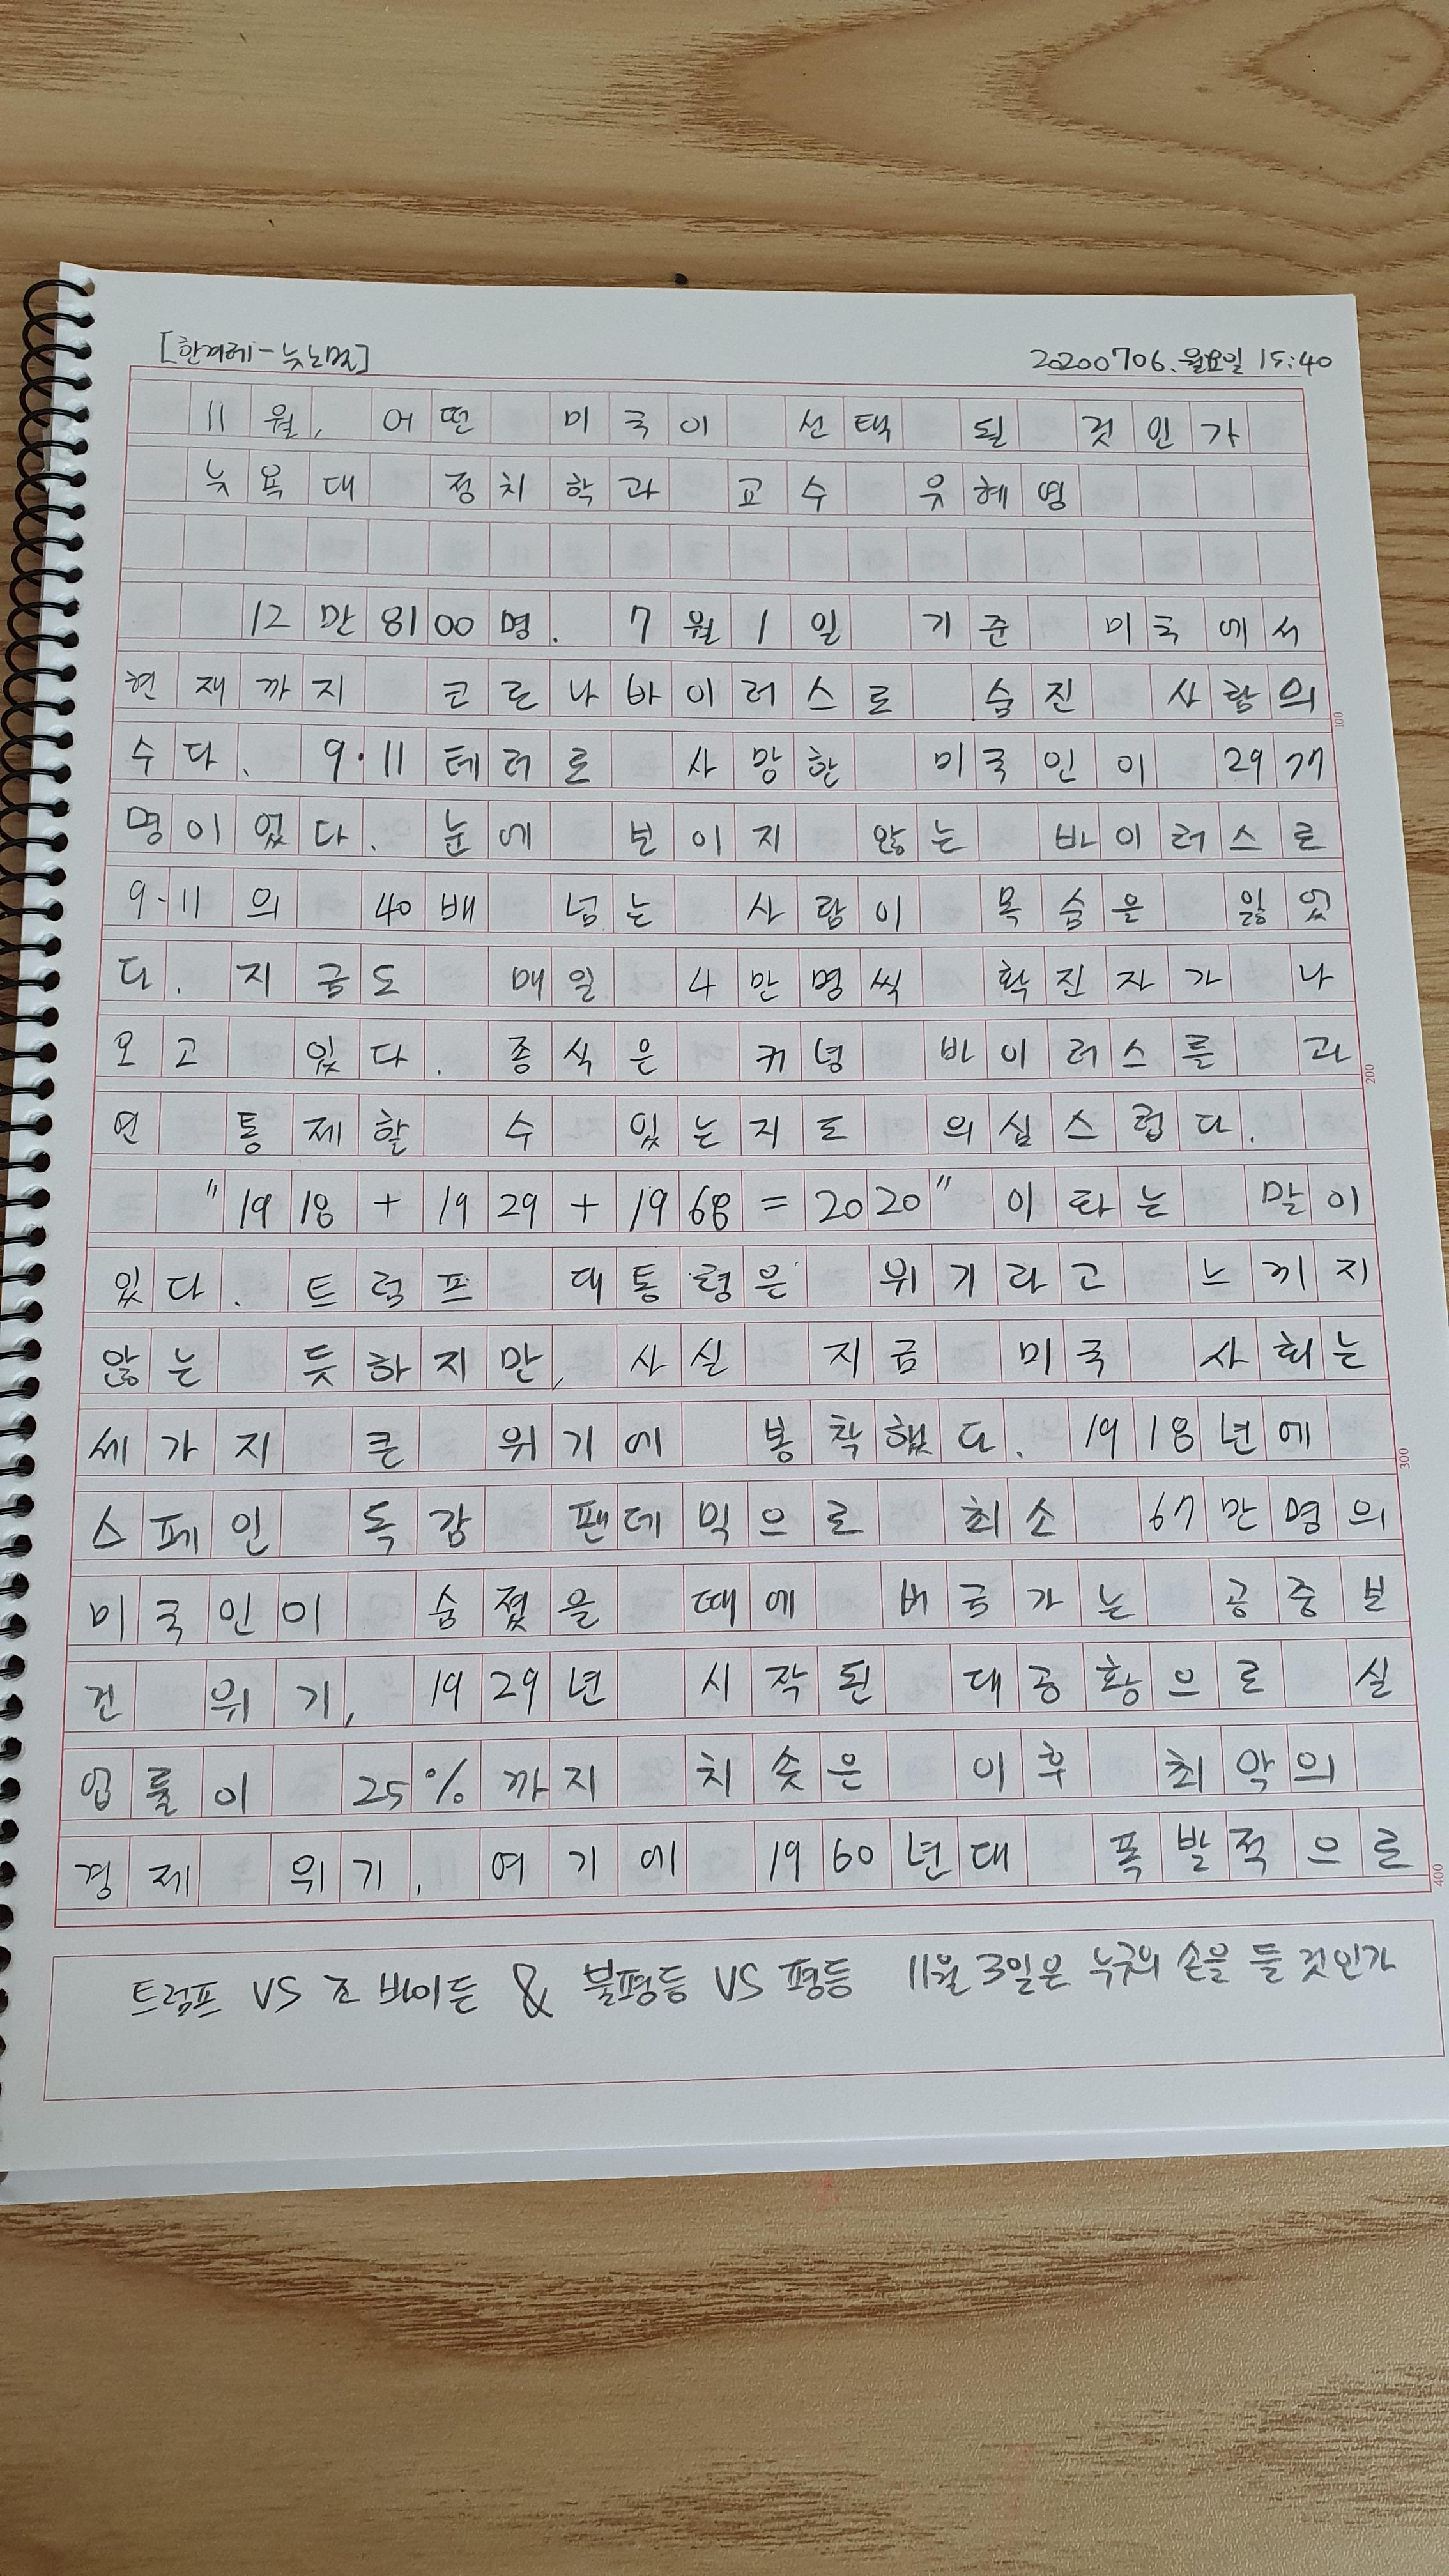 [한겨레-뉴노멀]
20200706.월요일 15:40
11월, 어떤 미국이 선택 될 것인가
뉴욕대 정치학과 교수 유혜영
12만 8100명. 7월 1일 기준 미국에서
현재까지 코로나바이러스로 숨진 사람의
수다. 9·11 테러로 사망한 미국인이 2977
명이었다. 눈에 보이지 않는 바이러스로
9·11의 40배 넘는 사람이 목숨은 잃었
다. 지금도 매일 4만명씩 확진자가 나
오고 있다. 종식은 커녕 바이러스를 과
연 통제할 수 있는지도 의심스럽다.
"1918 + 1929 + 1968 = 2020" 이라는 말이
있다. 트럼프 대통령은 위기라고 느끼지
않는 듯하지만, 사실 지금 미국 사회는
세가지 큰 위기에 봉착했다. 1918년에
스페인 독감 팬데믹으로 최소 67만명의
미국인이 숨졌을 때에 버금가는 공중보
건 위기, 1929년 시작된 대공황으로 실
업률이 25%까지 치솟은 이후 최악의
경제 위기. 여기에 1960년대 폭발적으로
100
200
300
400
트럼프 VS 조 바이든 & 불평등 VS 평등 11월 3일은 누구의 손을 들 것인가